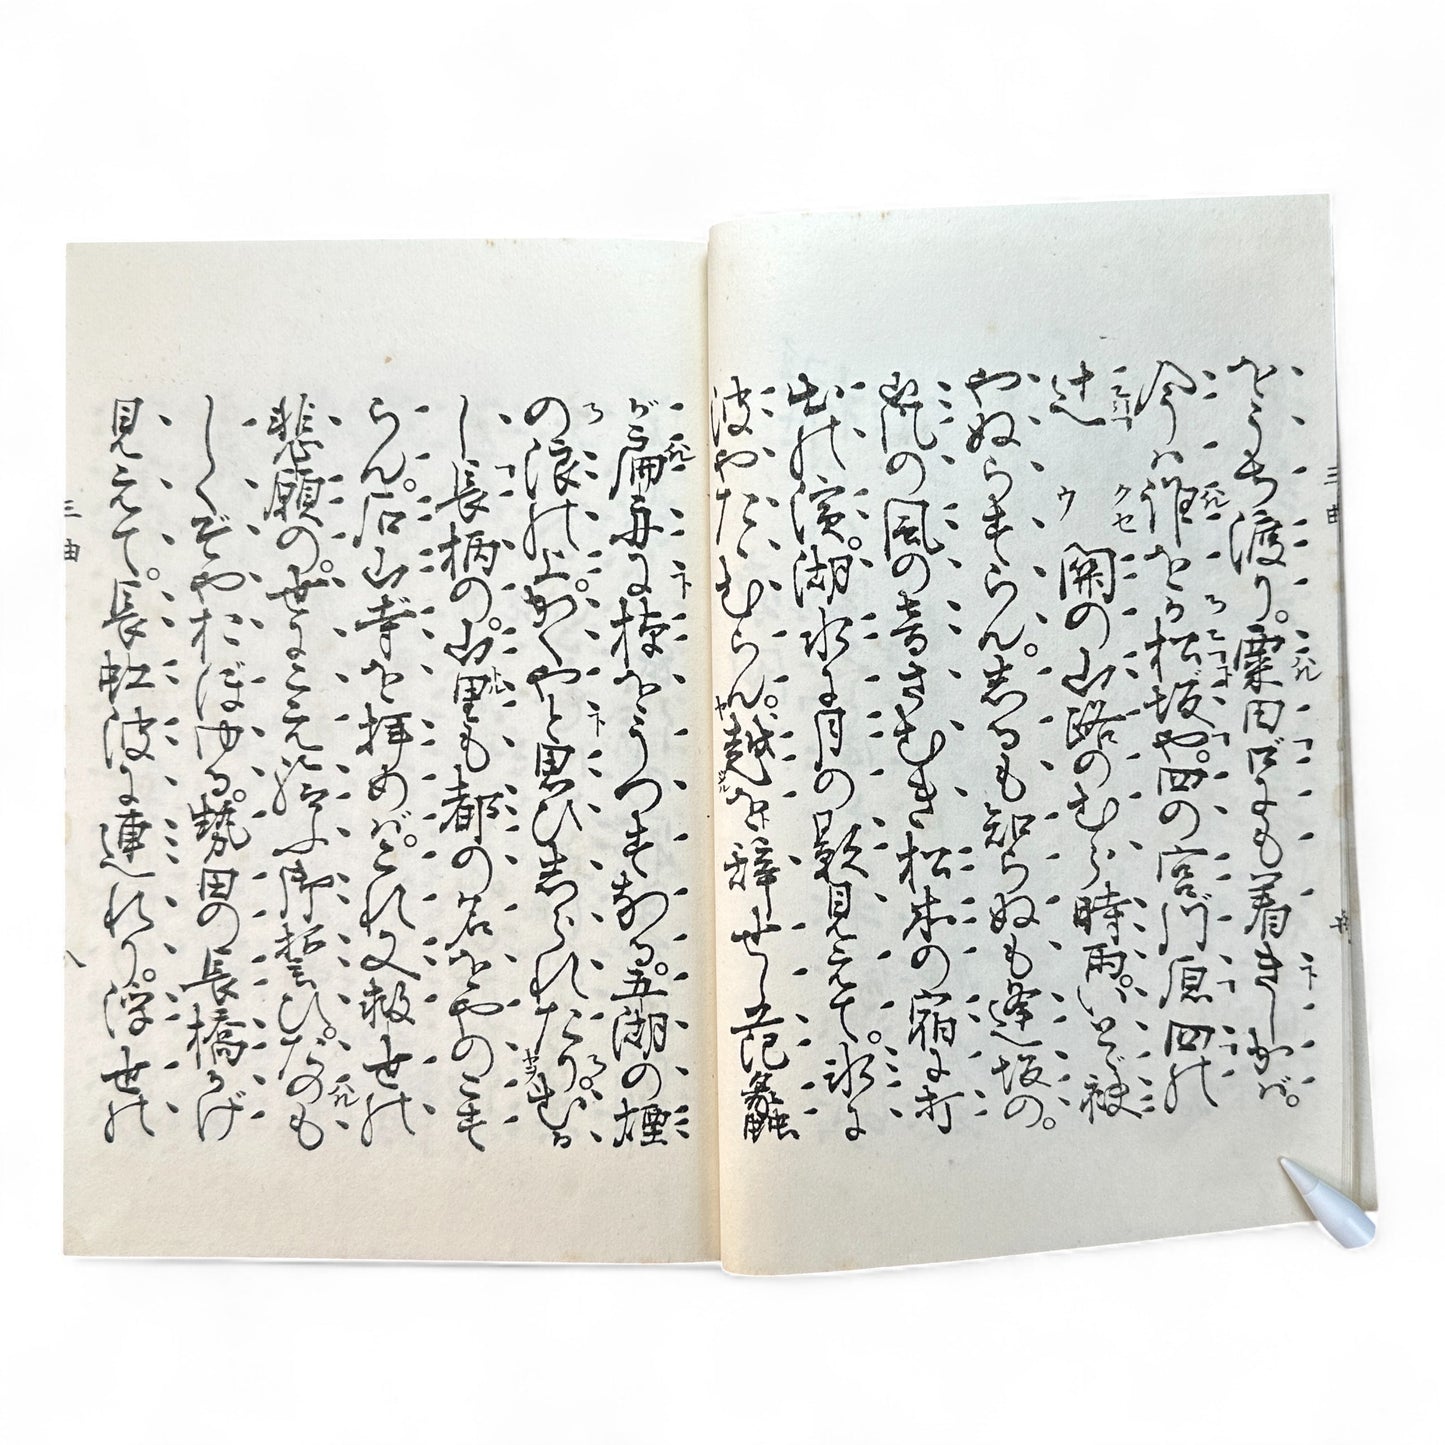 をうち渡り。粟田口にも着きしかば。
今は誰をか松坂や。四の宮河原四の
辻
クセ
ウ
関の山路のむら時雨。いとゞ袂
やぬらすらん。知るも知らぬも逢坂の。
嵐の風の音さむき松本の宿に打
出の濱。湖水に月の影見えて。氷に
波やたゝむらん。越を辞せし范蠡
が扁舟に棹をうつすなる。五湖の煙
の浪の上。かくやと思ひ知られたり。昔な
し長柄の。山里も都の名をやのこす
らん。石山寺を拝めば。これ又救世の
悲願の。世にこえ給ふ御誓ひ。たのも
しくぞやおぼゆる。勢田の長橋かげ
見えて。長虹波に連れり。浮世の
三曲
八
三曲